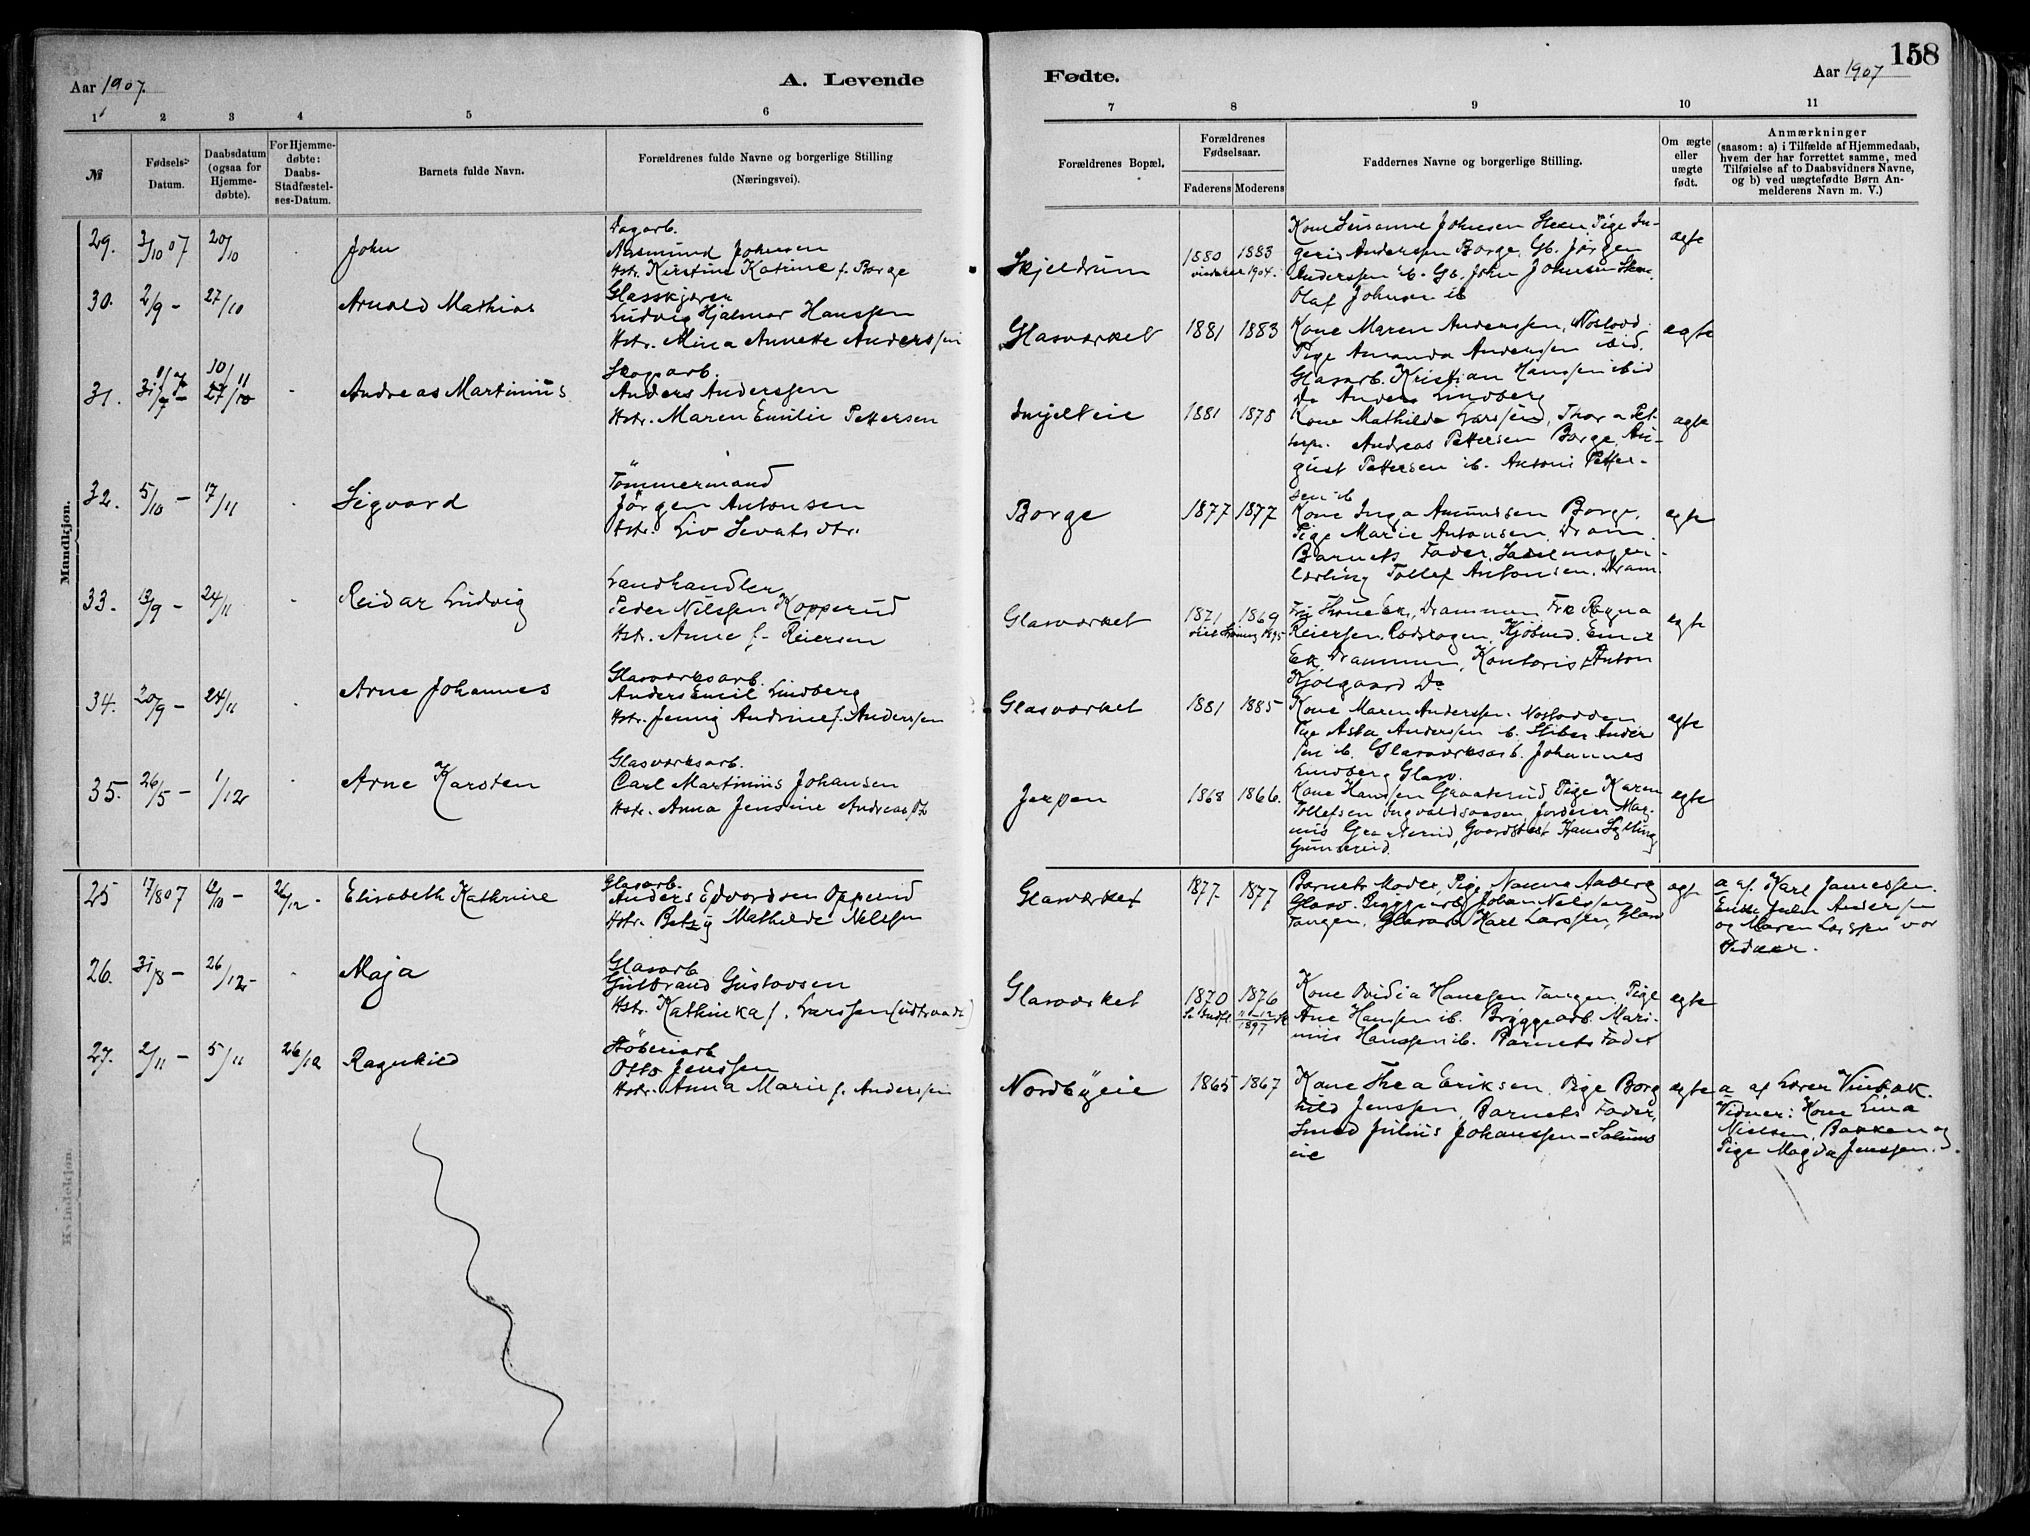 158
Aar 1907.
A. Levende
Fødte.
Aar 1907
1 2 3 4 5 6 7 8 9 10 11
№
Fødsels-
Datum.
Daabsdatum
(ogsaa for
Hjemme-
døbte).
For Hjemme-
døbte:
Daabs-
Stadfæstel-
ses-Datum.
Barnets fulde Navn.
Forældrenes fulde Navne og borgerlige Stilling
(Næringsvei).
Forældrenes Bopæl.
Forældrenes
Fødselsaar.
Faderens Moderens
Faddernes Navne og borgerlige Stilling.
Om ægte
eller
uægte
født.
Anmærkninger
(saasom: a) i Tilfælde af Hjemmedaab,
hvem der har forrettet samme, med
Tilføielse af to Daabsvidners Navne,
og b) ved uægtefødte Børn An-
melderens Navn m. V.)
Mandkjøn.
29. 3/10 07 20/10 John
Dagarb.
Aasmund Johnsen
Hstr. Kirstine Katrine f. Borge
Skjeldrum 1880 1883
viede 1904.
Kone Susanne Johnsen Skeen Pige In-
gerid Anderssen Borge, Gb. Jørgen
Anderssen ib. Gb. John Johnsen
Olaf Johnsen ib
ægte
30. 2/9 - 27/10 Arnold Mathias
Glasskjærer
Ludvig Hjalmar Hanssen
Hstr. Mina Annette Anderssen
Glasværket 1881 1883
Kone Maren Anderssen,
Pige Amanda Anderssen ibid.
Glasarb. Kristian Hanssen ibid
Do Anders Lindberg
ægte
31. 31/7 - 27/10 10/11 Andreas Martinius
Skogsarb.
Anders Anderssen
Hstr. Maren Emilie Pettersen
Ingjelteie 1881 1878
Kone Mathilde Larssen, Thora Pet-
tersen. Andreas Pettersen Borge, Au-
gust Pettersen ib. Antoni Petter-
sen ib
ægte
32. 5/10 - 17/11 Sigvard
Tömmermand
Jörgen Antonsen
Hstr. Liv Sevatsdtr.
Borge 1877 1877
Kone Inga Amundsen Borge.
Pige Marie Antonsen, Dram.
Barnets Fader, Sadelmager-
lærling Tollef Antonsen. Dram.
ægte
33. 13/9 - 24/11 Reidar Ludvig
Landhandler
Peder Nilssen Kopperud
Hstr. Anne f. Reiersen
Glasværket 1871 1869
Ek, Drammen Frk Ragna
Reiersen,
Ek, Drammen, Kontorist Anton
Kjølgaard Do
ægte
34. 20/9 - 24/11 Arne Johannes
Glasværksarb.
Anders Emil Lindberg
Hstr. Jenny Andrine f. Anderssen
Glasværket 1881 1885
Kone Maren Anderssen.
Pige Asta Anderssen ib. Sliber Ander
sen ib. Glasværksarb. Johannes
Lindberg Glasv.
ægte
35. 26/5 - 1/12 Arne Karsten
Glasværksarb.
Carl Martinius Johansen
Hstr. Anna Jensine Andreasdt.
Jerpen 1868 1866.
Kone Hansen Graaterud Pige Karen
Tollefsen Ingvaldsaasen, Jordeier Mag-
nus Graaterud, Gaardsbst Hans Sylling
ægte
Kvindekjøn.
25 17/8 07 /10 - 26/12 - Elisabeth Kathrine
Glasarb.
Anders Edvardsen Opperud
Hstr. Betzy Mathilde Nilssen
Glasværket 1877 1877
Barnets Moder, Pige Nanna Aaberg
Glasv. Bryggearb. Johan Nilssen
Tangen, Glasarb Karl Larssen, Glasv
ægte
a af. Karl Janessen.
Enke Julie Andersen
og Maren Larssen var
Vidner.
26. 31/8 - 26/12 - Maja
Glasarb
Gulbrand Gustavsen
Hstr. Kathinka f. Larssen (udtraadt)
Glasværket 1870 1876
1897
Kone Ovidia Hanssen Tangen, Pige
Ane Hanssen ib. Bryggearb. Mari-
nius Hanssen ib. Barnets Fader
ægte
27. 2/11 - 5/11 26/12 Ragnhild
Støberiarb
Otto Jenssen
Hstr. Anna Marie f. Anderssen
Nordbyeie 1865 1867
Kone Thea Eriksen. Pige Borg
hild Jenssen, Barnets Fader,
Smed Julius Johanssen - Solums
eie
ægte
a af Lærer Vinbak.
Vidner: Kone Lina
Nielsen, Bakken og
Pige Magda Jenssen.